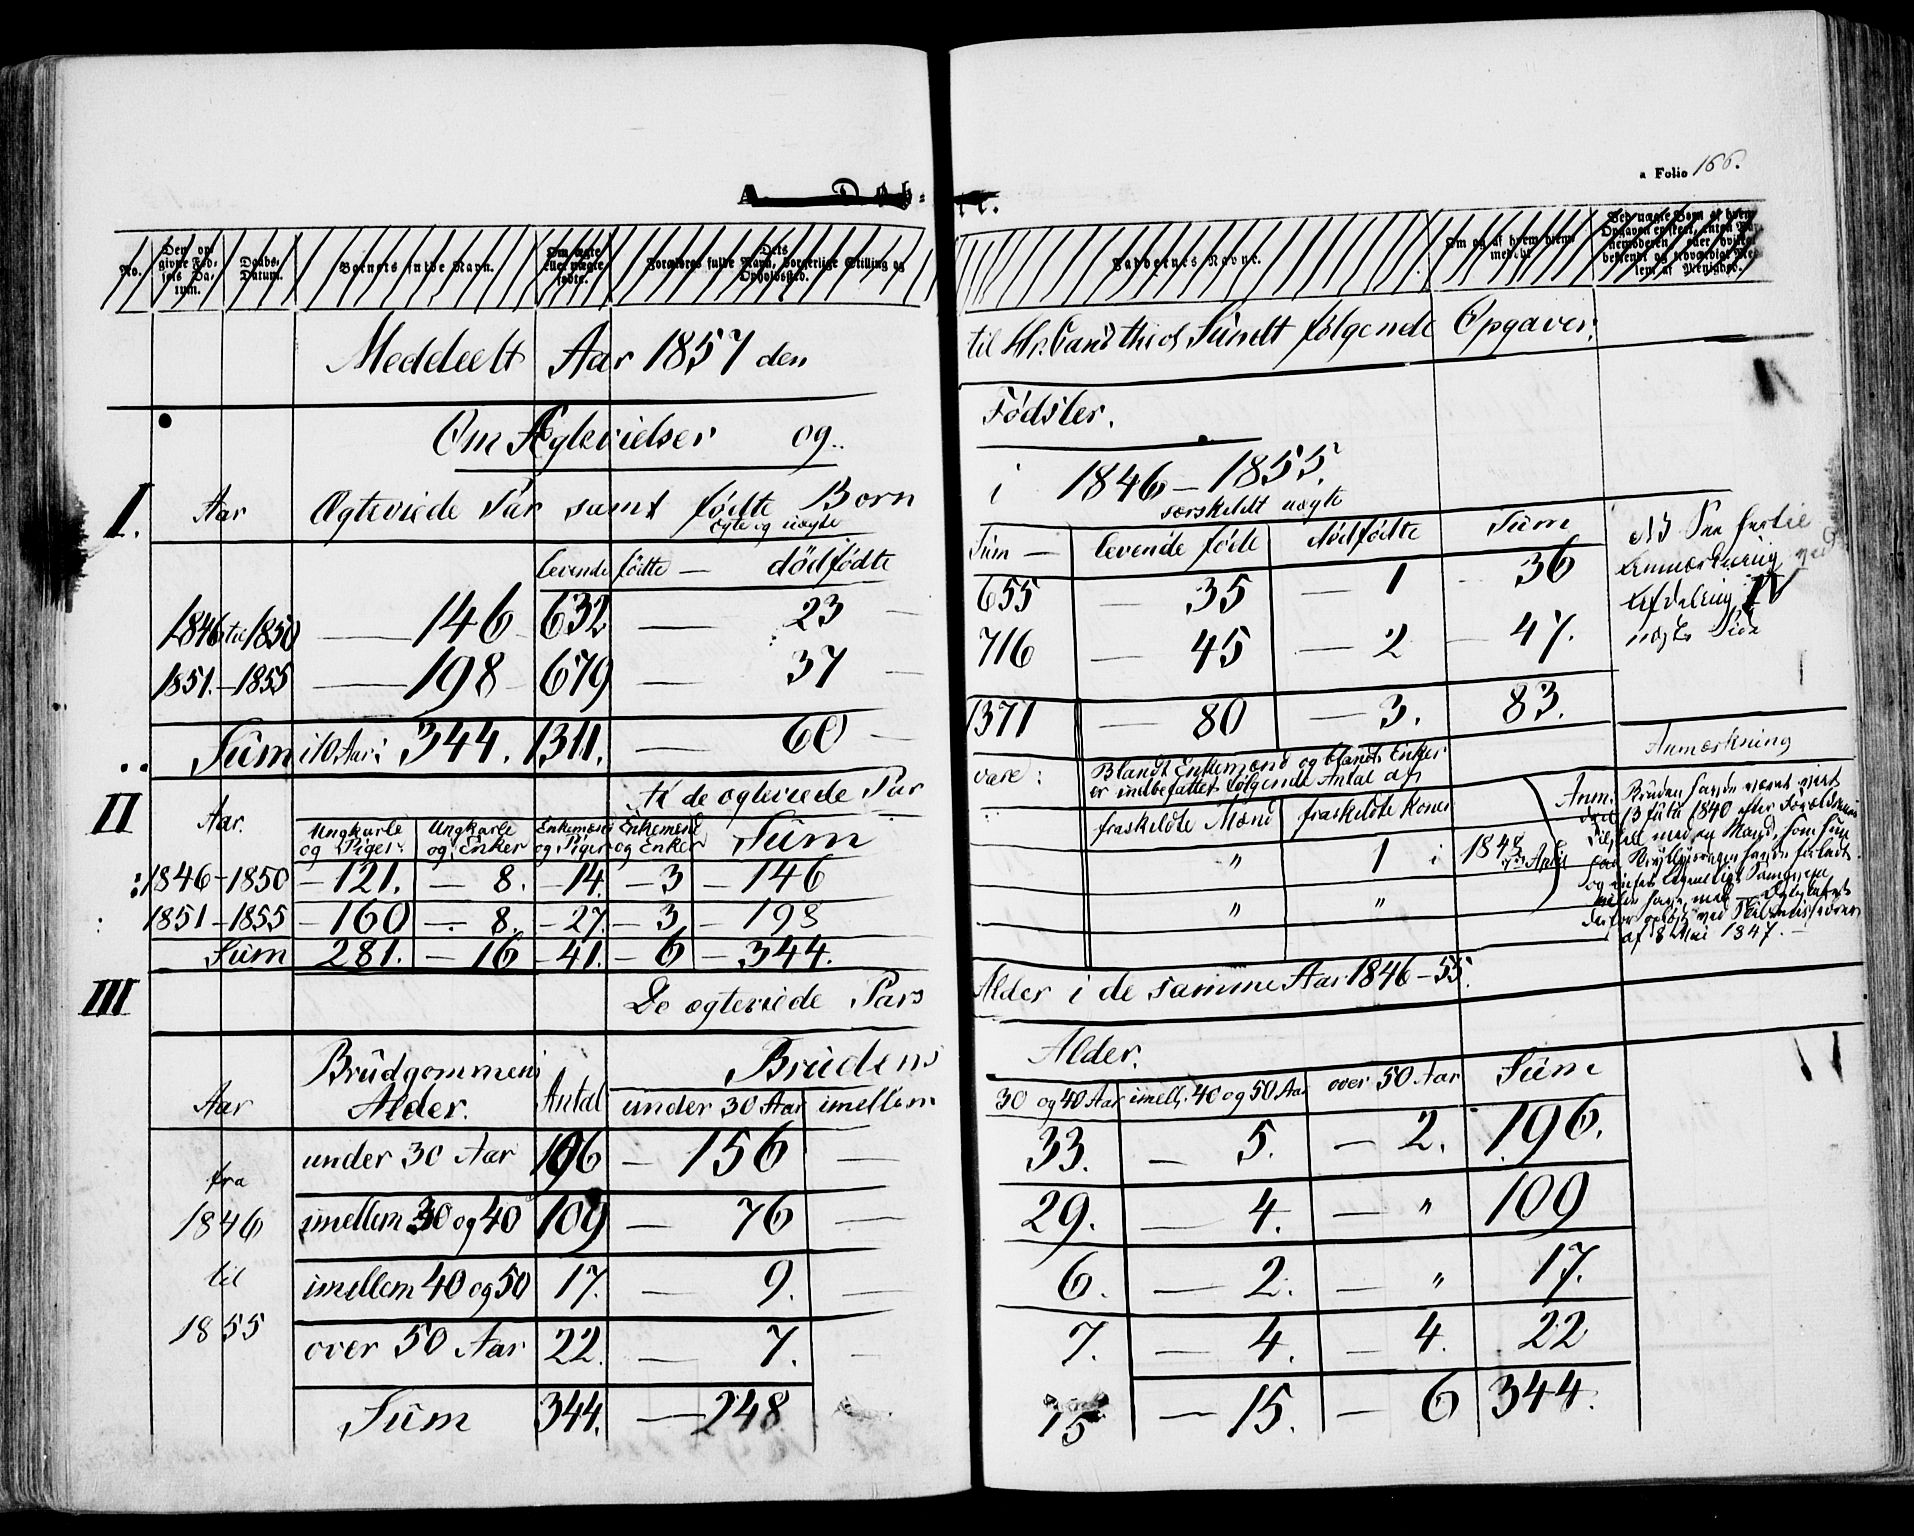 a Folio 166.
A. Døbte.
No.
Den opgivne Fødsels Datum.
Daabs-Datum.
Barnets fulde Navn.
Om ægte eller uægte født.
Forældres fulde Navn, borgerlige Stilling og Opholdssted.
Faddernes Navne.
Om og af hvem hjemmedøbt
Meddeelt Aar 1857 den til Hr. Cand theol Sundt følgende Opgaver:
Om Ægtevielser og Fødsler.
i 1846 – 1855.
I. Aar Ægteviede Par samt fødte Børn særskildt uægte
ægte og uægte
levende fødte — dødfødte Sum — levende føde dødfødte Sum
1846 til 1850 — 146 632 — 23 — 655 — 35 — 1 — 36
1851. – 1855 — 198 679 — 37 — 716 — 45 — 2 — 47.
Sum i 10 Aar: 344. 1311. — 60 — 1371 — 80 — 3. 83.
NB See hertil
Anmærkning ved
Afdeling IV
næste Side
II Aar. Af de ægteviede Par vare: Blandt Enkemænd og blandt Enker
er indbefattet følgende Antal af
Ungkarle og Piger: Ungkarle og Enker Enkemænd og Piger Enkemænd og Enker Sum fraskildte Mænd fraskildte Koner
1846 – 1850 – 121. — 8. – 14. – 3 – 146 " 1 i 1848
1851 – 1855 – 160 — 8. – 27. – 3 – 198 " "
Sum 281. – 16 – 41. – 6 – 344.
Anmærkning
Anm. Bruden havde været viet
den 13 Juli 1840 efter Forældrenes
med en Mand, som hun
paa Bryllupsdagen havde forladt
og
af 8 Mai 1847. –
III De ægteviede Pars Alder i de samme Aar 1846 – 55.
Aar Brudgommens Alder. Antal Brudens Alder.
under 30 Aar imellem 30 og 40 Aar imell. 40 og 50 Aar over 50 Aar Sum
fra 1846 til 1855
under 30 Aar 196 – 156 — 33. — 5. – 2. 196.
imellem 30 og 40 109 — 76 — 29. — 4. — " 109
imellem 40 og 50 17. — 9. — 6. — 2. — " 17.
over 50 Aar 22. — 7. — 7. — 4. — 4. 22
Sum 344. — 248 75 — 15. — 6 344.